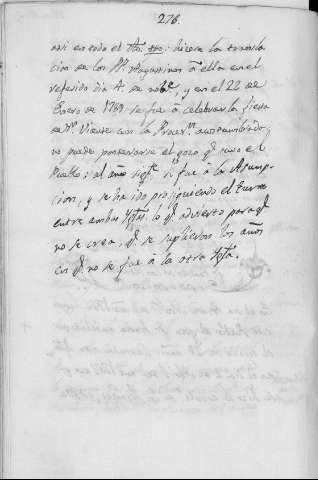 276.
asi en todo el Año sro: hicieron la transla
cion de los PP. Agustinos á ella en el
referido dia 4. de nobre, y en el 22 de
Enero de 1769 se fue á celebrar la fiesta
de Sn Vicente con la Proceson acostumbrada,
no puede ponderarse el gozo qe tuvo el
Pueblo; al año sigte se fue á la Asump-
cion, y se ha ido prosiguiendo el turno
entre ambas Yglas lo qe advierto para qe
no se crea, qe se suplieron los años
en qe no se fue á la otra Ygla.